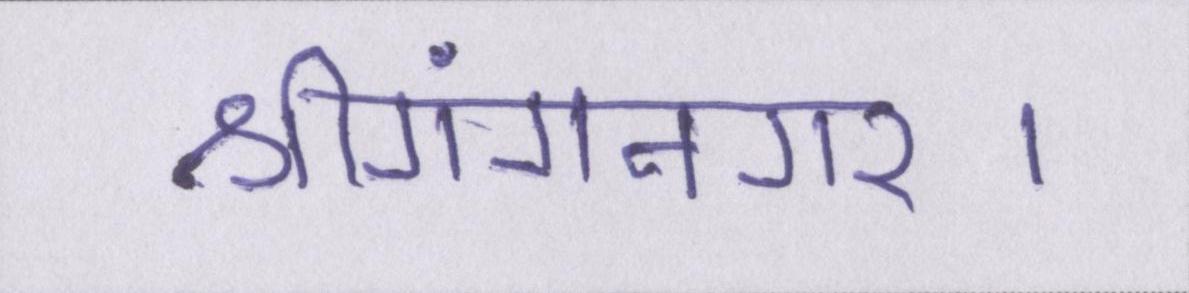 श्रीगंगनगर।